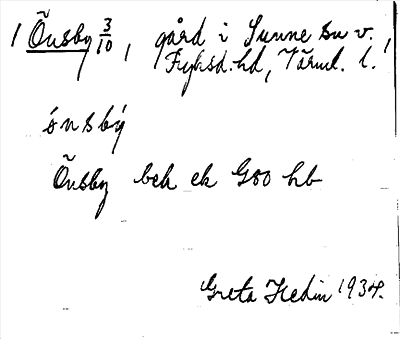 1 Önsby 3/10, gård i Sunne sn v.,
Fryksd. hd, Värml. l.
ónsbý
Önsby bek ek G00 hb
Greta Hedin 1934.